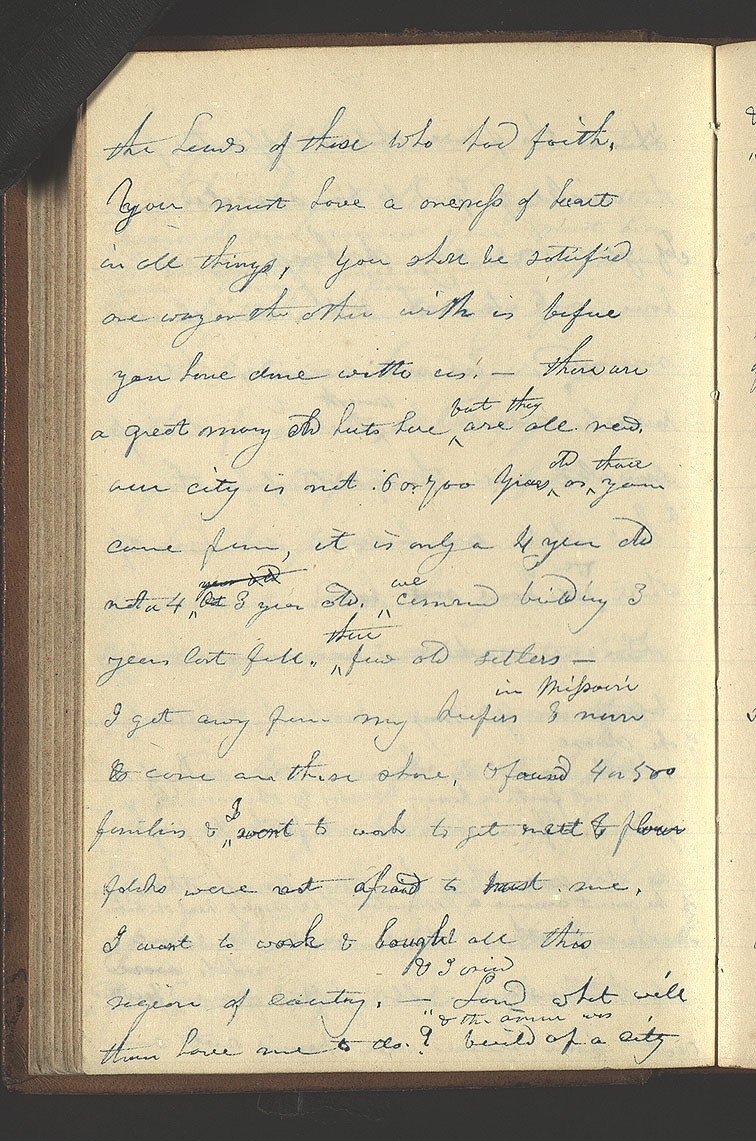 the heads of those who had faith.
You must have a oneness of heart
in all things, You shall be satisfied
one way or the other with us before
you have done with us! — there are
but they
a great many old huts here are all new.
old those
our city is not 6 or 700 years as you
came from, it is only a 4 year old
year old we
not a 4, but 3 year old. commenced building 3
there
years last fall. few old settlers —
in Missouri
I got away from my keepers & run
& come on these shore, & found 4 or 500
I
families & went to work to get meat & flour
folks were not afraid to trust me.
I went to work & bought all this
& I cried
region of country. — Lord what will
& the answer was
thou have me to do? build up a city